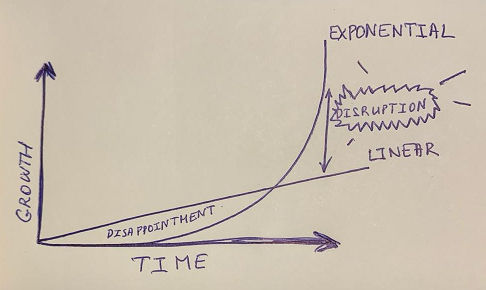 EXPONENTIAL
DISRUPTION
LINEAR
GROWTH
DISAPPOINTMENT
TIME